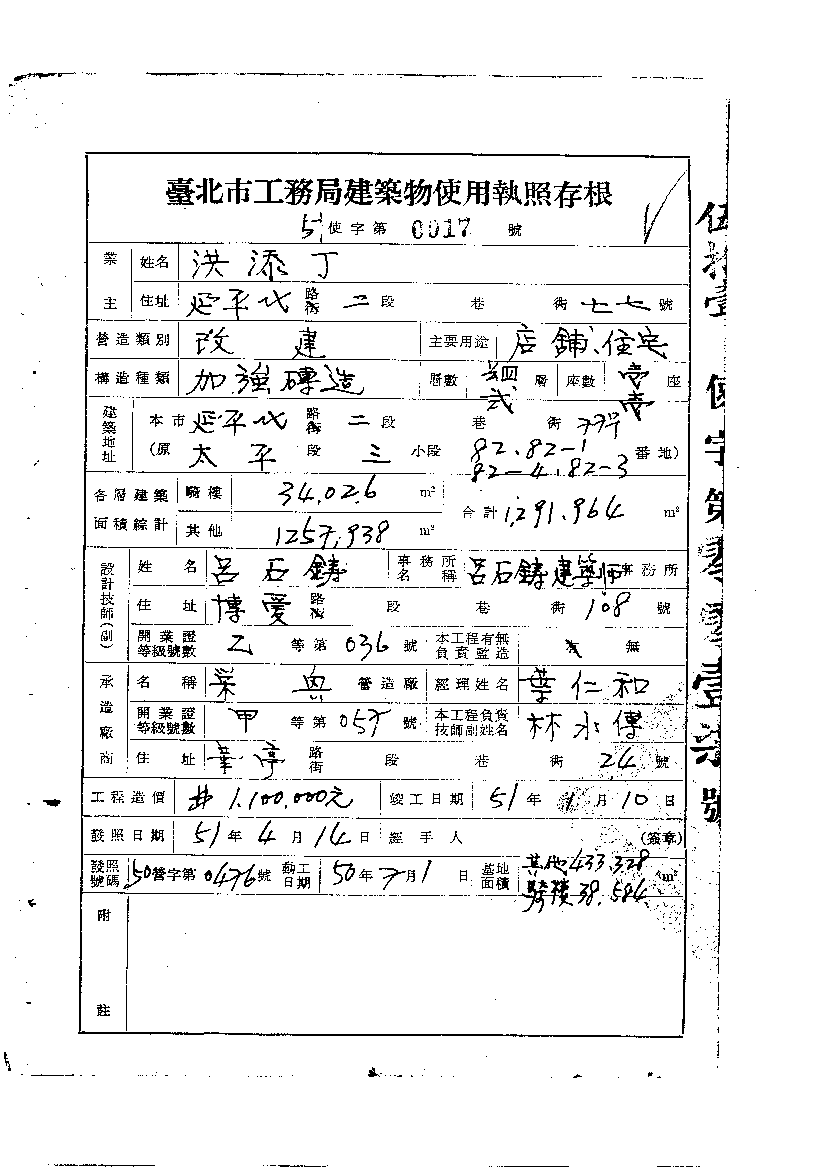 臺北市工務局建築物使用執照存根
51使字第 0017 號
業主 姓名 洪添丁
住址 延平北 路街 二 段 巷 街 七七 號
營造類別 改建 主要用途 店鋪、住宅
構造種類 加強磚造 層數 肆 貳 層 座數 壹 壹 座
建築地址 本市 延平北 路街 二 段 巷 街 77號
(原 太平 段 三 小段 82.82-1 82-4.82-3 番地)
各層建築面積綜計 騎樓 34.026 m² 合計 1,291.964 m²
其他 1257.938 m²
設計技師(副) 姓名 呂石鑄 事務所名稱 呂石鑄建築師事務所
住址 博愛 路街 段 巷 街 108 號
開業證等級號數 乙 等第 036 號 本工程有無負責監造 有 無
承造廠商 名稱 榮興 營造廠 經理姓名 葉仁和
開業證等級號數 甲 等第 057 號 本工程負責技師副姓名 林水傳
住址 華亭 路街 段 巷 街 24 號
工程造價 #1,100,000元 竣工日期 51 年 1 月 10 日
發照日期 51 年 4 月 14 日 經手人 (簽章)
發照號碼 50營字第 0476 號 動工日期 50 年 7 月 1 日 基地面積 其他 433.328 騎樓 38.584 m²
附註
伍拾壹使字第零零壹柒號